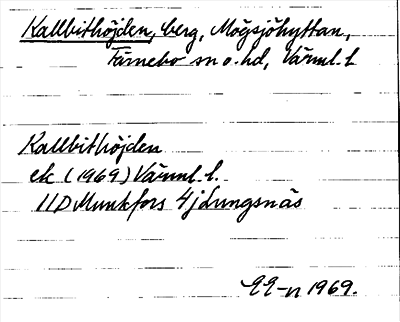 Kallbithöjden, berg, Mögsjöhyttan,
Färnebo sn o. hd, Värml. l.
Kallbithöjden
ek (1969) Värml. l.
11D Munkfors 4j Lungsnäs
EE-n 1969.